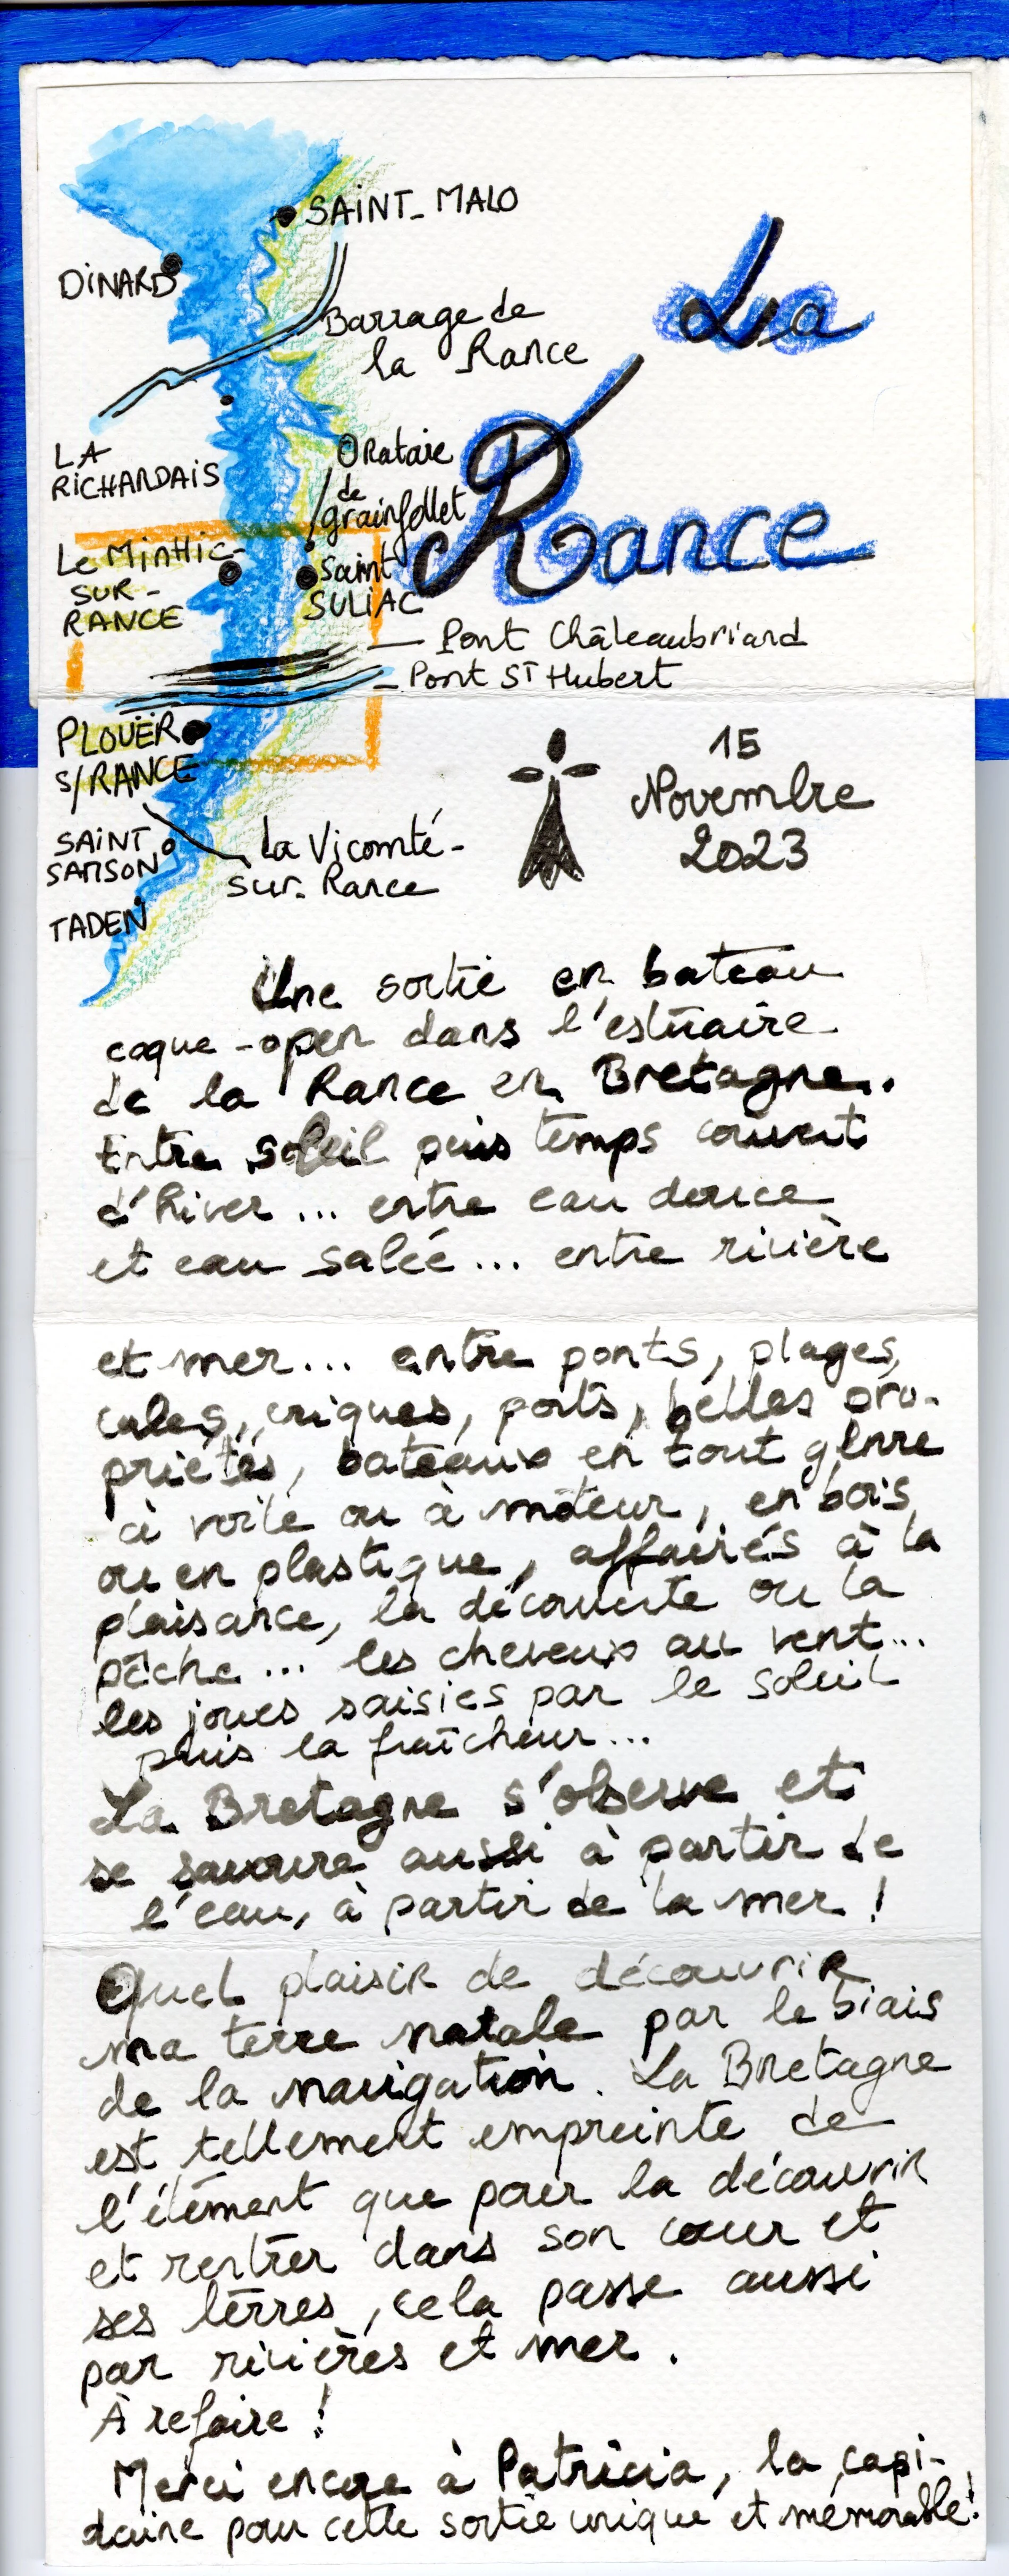 SAINT-MALO
DINARD
Barrage de
la Rance
La
Rance
LA
RICHARDAIS
ORatoire
de
grainfollet
Le MiNHiC-
SUR-
RANCE
Saint
SULIAC
Pont Châteaubriand
Pont ST Hubert
PLOUËR
S/RANCE
SAINT
SAMSON
La Vicomté-
sur-Rance
TADEN
15
Novembre
2023
Une sortie en bateau
coque-open dans l'estuaire
de la Rance en Bretagne.
Entre soleil puis temps couvert
d'hiver... entre eau douce
et eau salée... entre rivière
et mer... entre ponts, plages,
cales, criques, ports, belles pro-
priétés, bateaux en tout genre
à voile ou à moteur, en bois
ou en plastique, affairés à la
plaisance, la découverte ou la
pêche... les cheveux au vent...
les joues saisies par le soleil
puis la fraîcheur...
La Bretagne s'observe et
se savoure aussi à partir de
l'eau, à partir de la mer !
Quel plaisir de découvrir
ma terre natale par le biais
de la navigation. La Bretagne
est tellement empreinte de
l'élément que pour la découvrir
et rentrer dans son cœur et
ses terres, cela passe aussi
par rivières et mer.
À refaire !
Merci encore à Patricia, la capi-
daine pour cette sortie unique et mémorable!